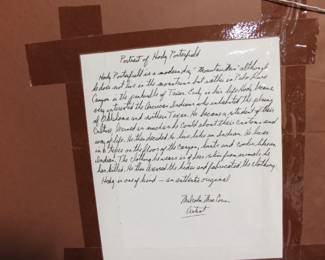 Portrait of Hondy Porterfield
Hondy Porterfield is a modern day "Mountain Man" although
he does not live in the mountains but rather in Palo Duro
Canyon in the panhandle of Texas. Early in his life Hondy became
very interested in the American Indians who inhabited the plains
of Oklahoma and northern Texas. He became a student of their
culture, learned as much as he could about their customs and
way of life. He then decided to live like an Indian. He lives
in a tepee on the floor of the Canyon, hunts and cooks like an
Indian. The clothing he wears is of hides taken from animals he
has killed. He then the hides and fabricated the clothing.
Hondy is one of a kind — an authentic original.
Malcolm
Artist